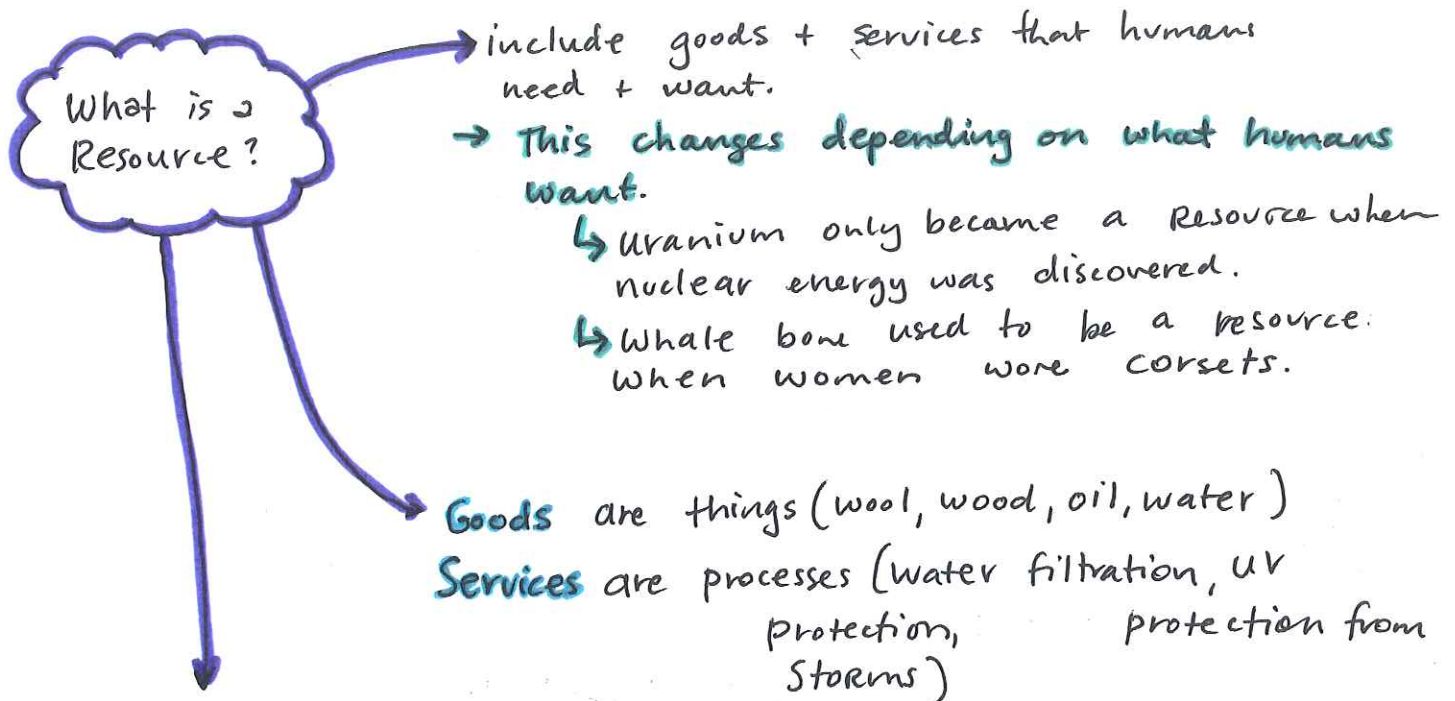 What is a
Resource?
include goods + services that humans
need + want.
→ This changes depending on what humans
want.
↳ uranium only became a Resource when
nuclear energy was discovered.
↳ Whale bone used to be a resource
when women wore corsets.
Goods are things (wool, wood, oil, water)
Services are processes (water filtration, UV
protection, protection from
Storms)